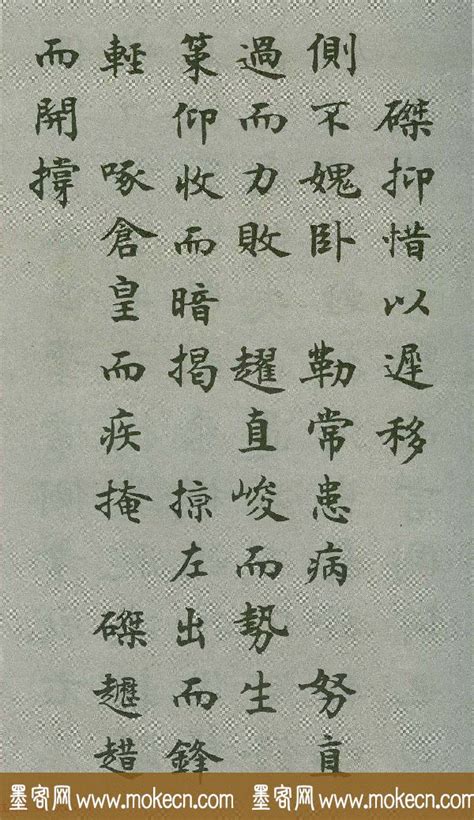 磔抑惜以遲移
側不媿卧 勒常患病 努直
過而力敗 趯直峻而勢生
策仰收而暗揭 掠左出而鋒
輕 啄倉皇而疾掩 磔
而開撐
墨客网www.mokecn.com 墨客网www.mokecn.com